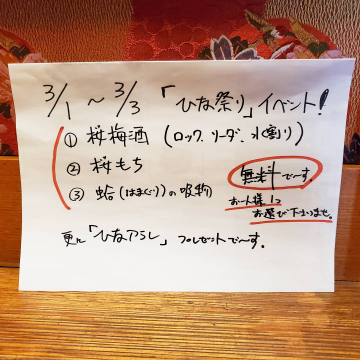 3/1 ~ 3/3 「ひな祭り」イベント!
① 桜梅酒 (ロック、ソーダ、水割り)
② 桜もち
③ 蛤(はまぐり)の吸物
無料で〜す。
お一人様 1つ
お選び下さいませ。
更に「ひなアラレ」プレゼントで〜す。